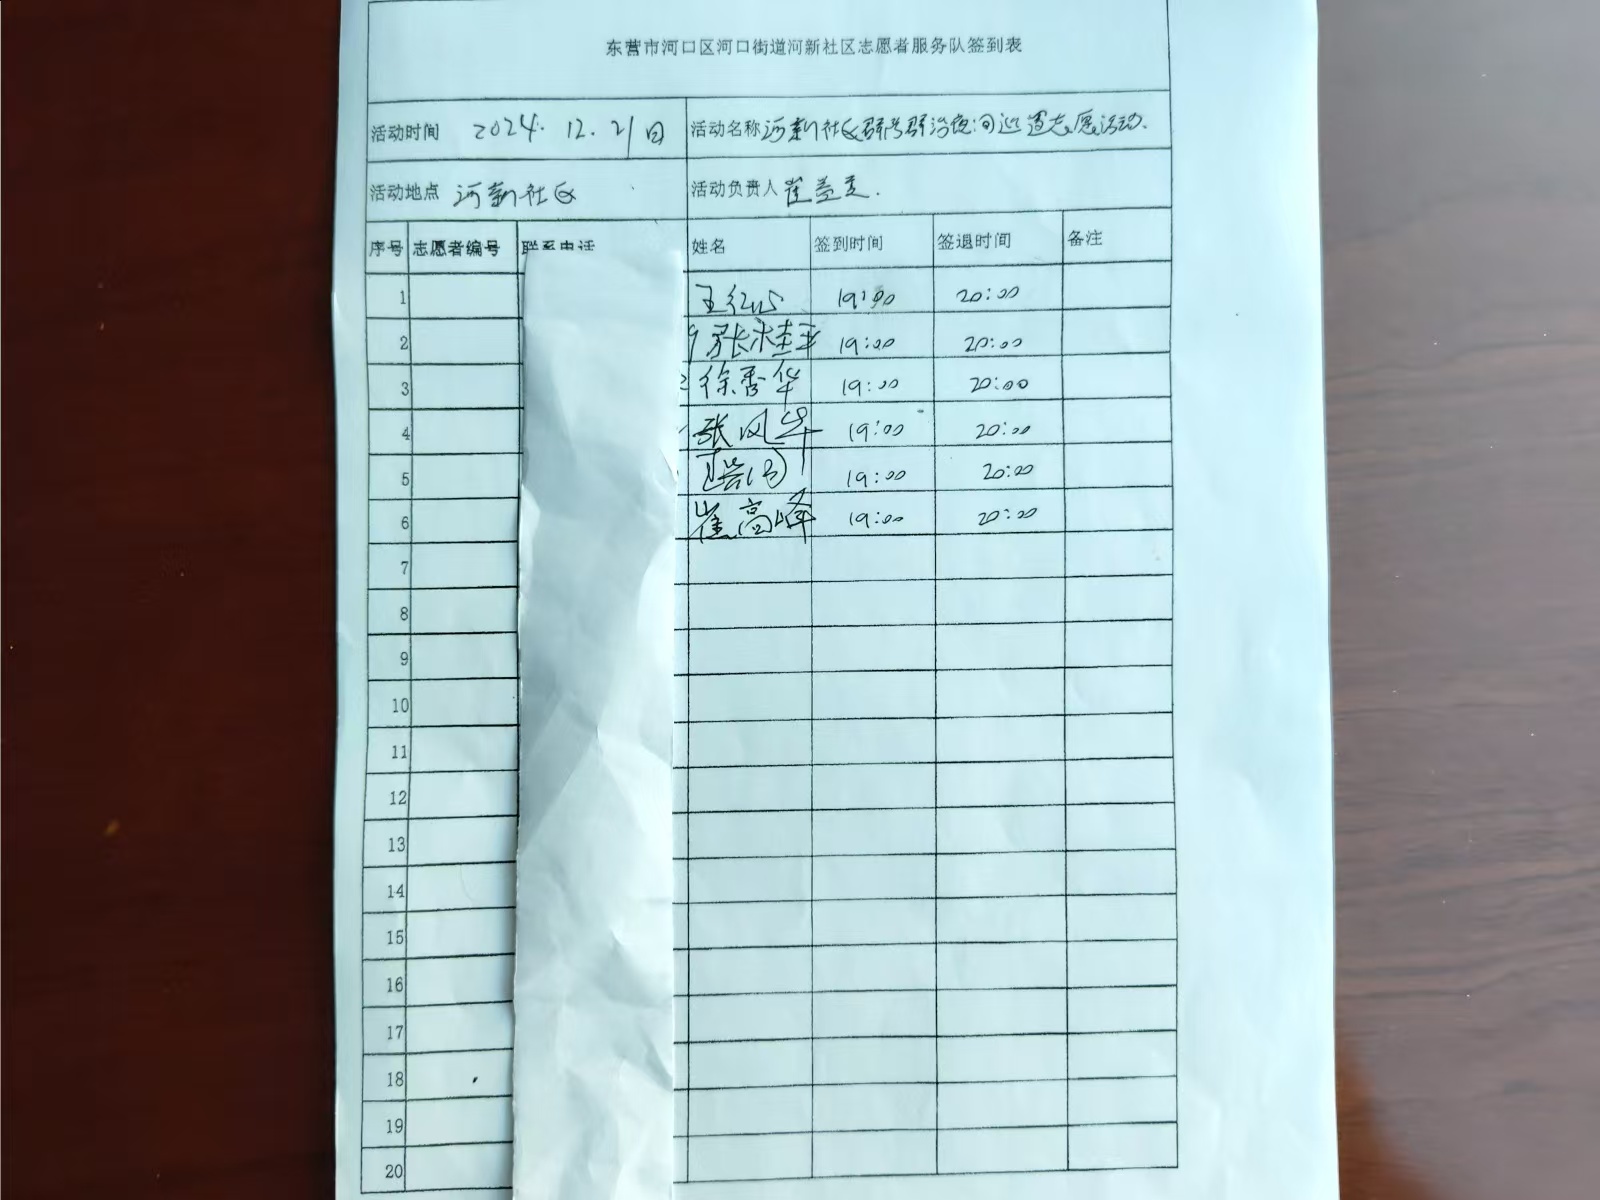 东营市河口区河口街道河新社区志愿者服务队签到表
活动时间 2024.12.21日 活动名称 河新社区群防群治夜间巡逻志愿活动.
活动地点 河新社区 活动负责人 崔
序号 志愿者编号 联系电话 姓名 签到时间 签退时间 备注
1 王红心 19:00 20:00
2 9 张桂玉 19:00 20:00
3 2 徐秀华 19:00 20:00
4 张风华 19:00 20:00
5 19:00 20:00
6 崔高峰 19:00 20:00
7
8
9
10
11
12
13
14
15
16
17
18
19
20